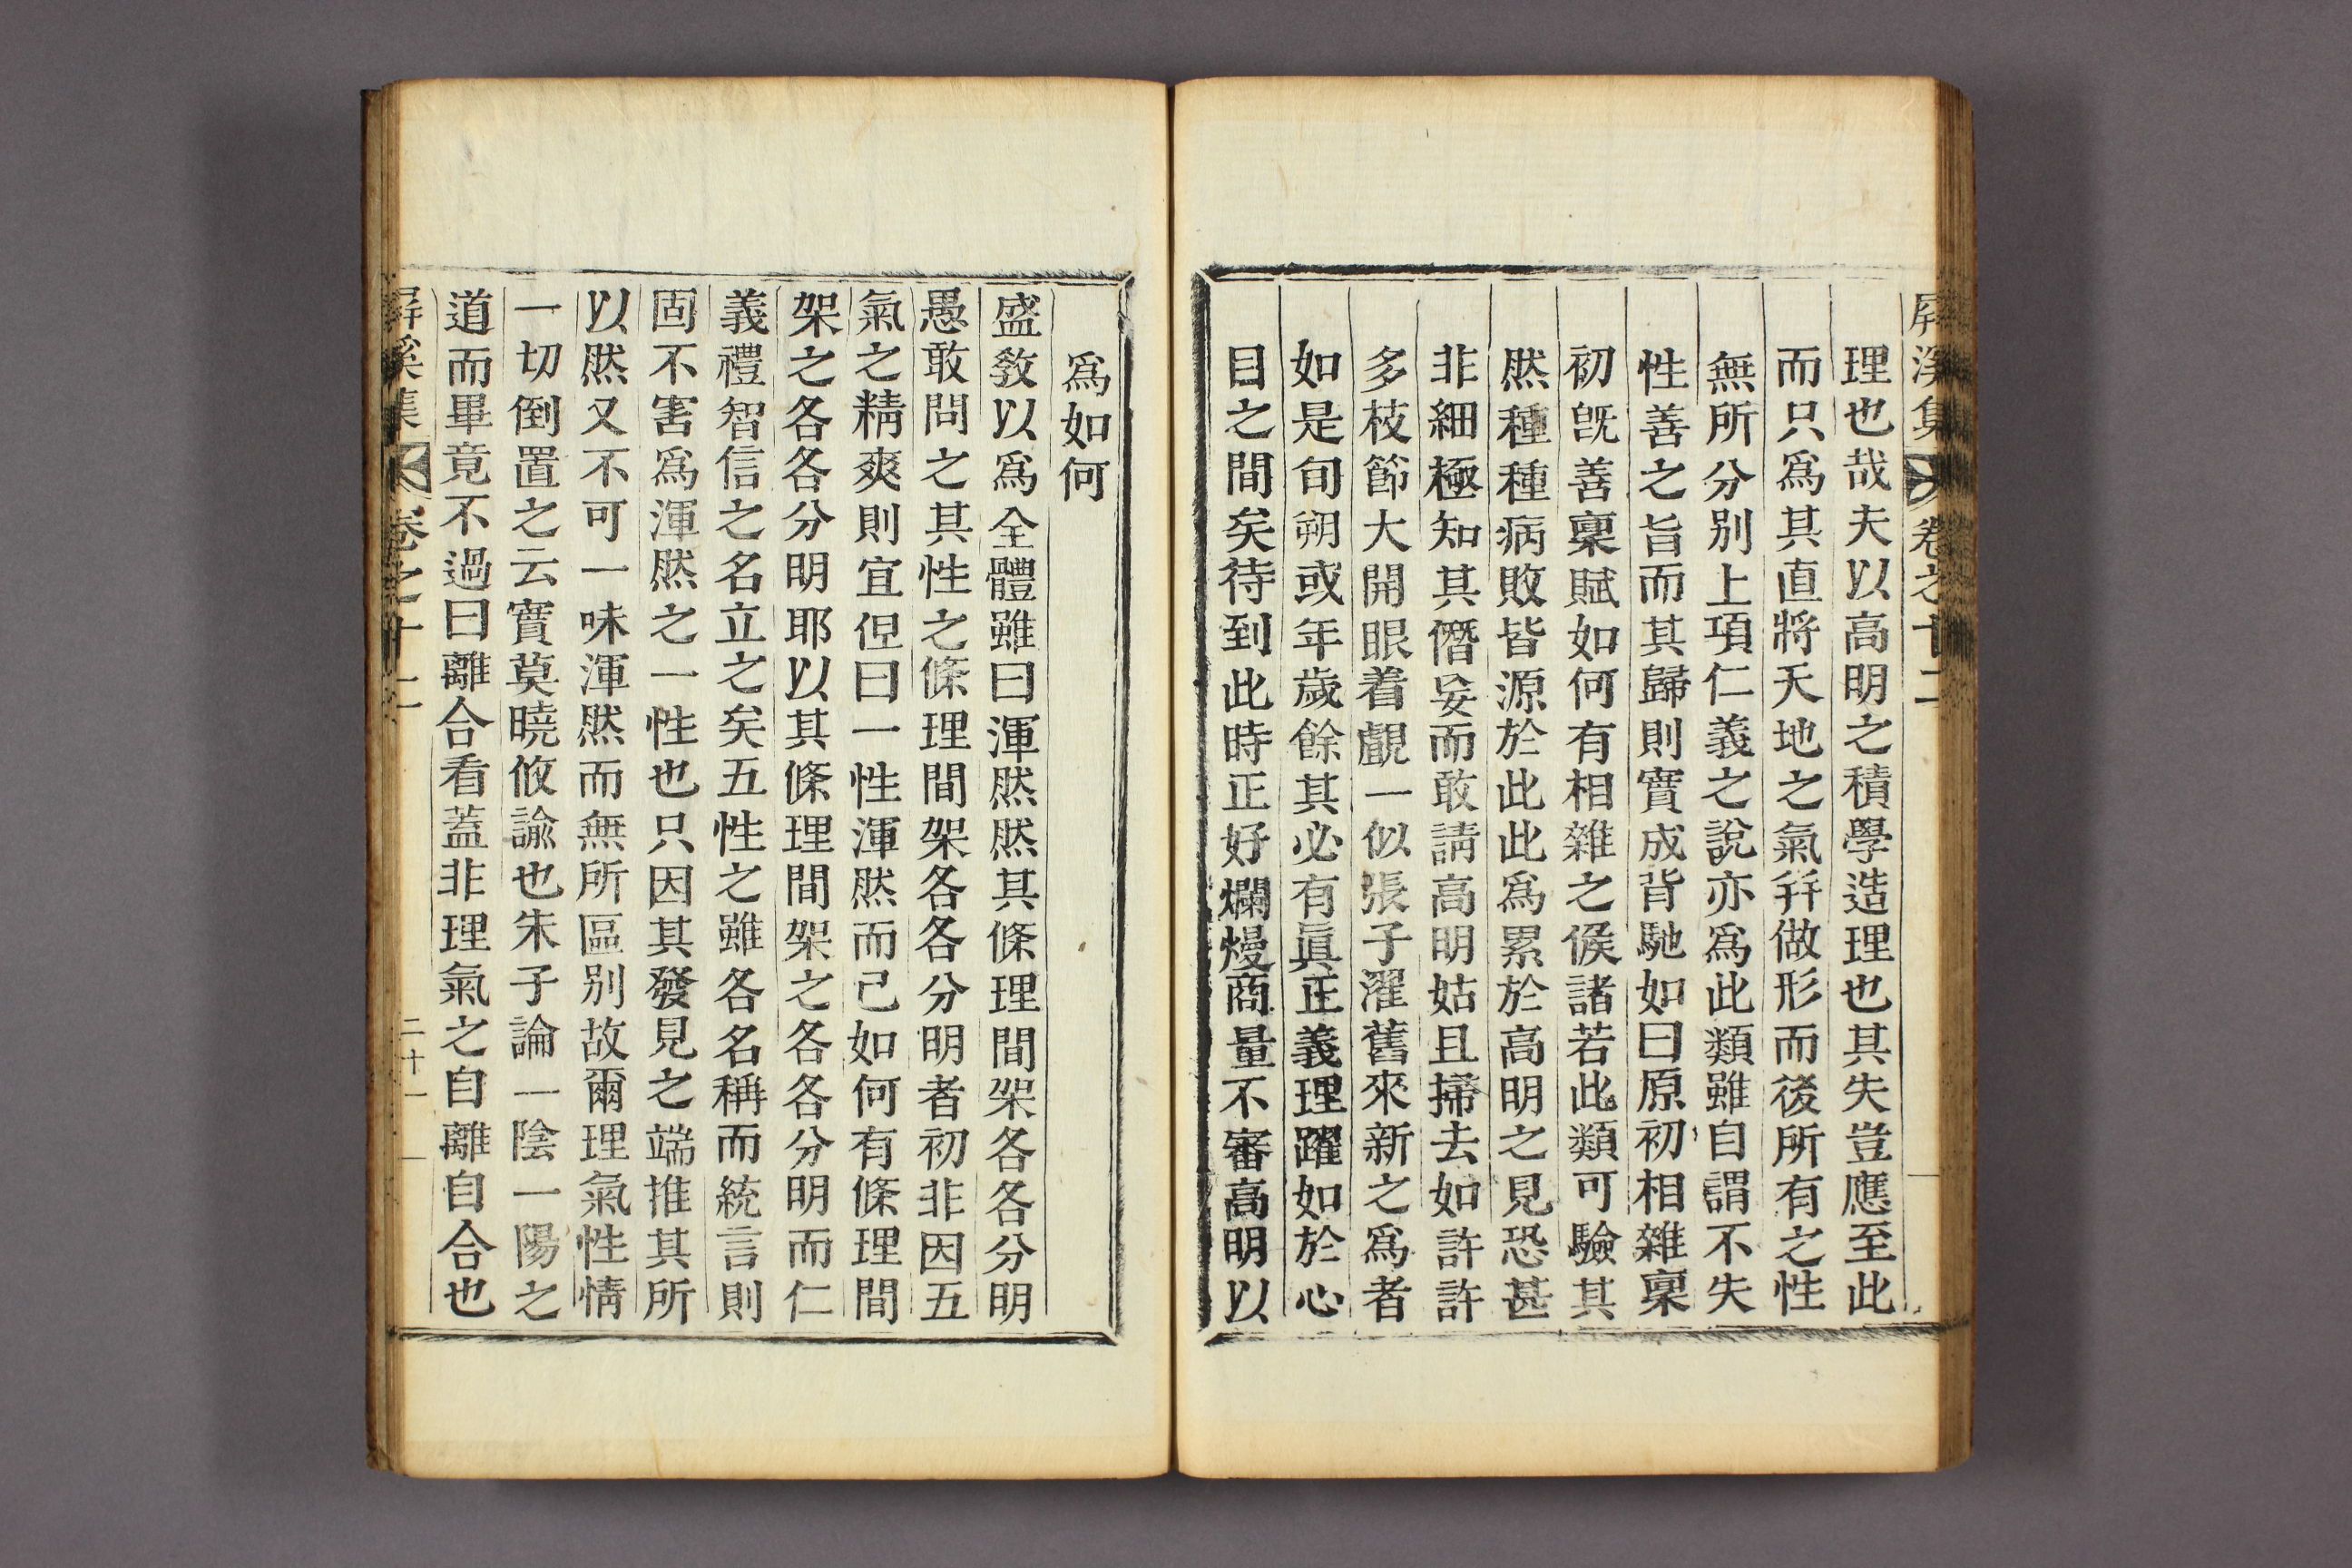 屛溪集 卷之十二
理也哉夫以高明之積學造理也其失豈應至此
而只爲其直將天地之氣幷做形而後所有之性
無所分別上項仁義之說亦爲此類雖自謂不失
性善之旨而其歸則實成背馳如曰原初相雜稟
初旣善稟賦如何有相雜之俟諸若此類可驗其
然種種病敗皆源於此此爲累於高明之見恐甚
非細極知其僭妄而敢請高明姑且掃去如許許
多枝節大開眼着覰一似張子濯舊來新之爲者
如是旬朔或年歲餘其必有眞正義理躍如於心
目之間矣待到此時正好爛熳商量不審高明以
爲如何
盛敎以爲全體雖曰渾然然其條理間架各各分明
愚敢問之其性之條理間架各各分明者初非因五
氣之精爽則宜但曰一性渾然而已如何有條理間
架之各各分明耶以其條理間架之各各分明而仁
義禮智信之名立之矣五性之雖各名稱而統言則
固不害爲渾然之一性也只因其發見之端推其所
以然又不可一味渾然而無所區別故爾理氣性情
一切倒置之云實莫曉攸諭也朱子論一陰一陽之
道而畢竟不過曰離合看蓋非理氣之自離自合也
屛溪集 卷之十二 二十一